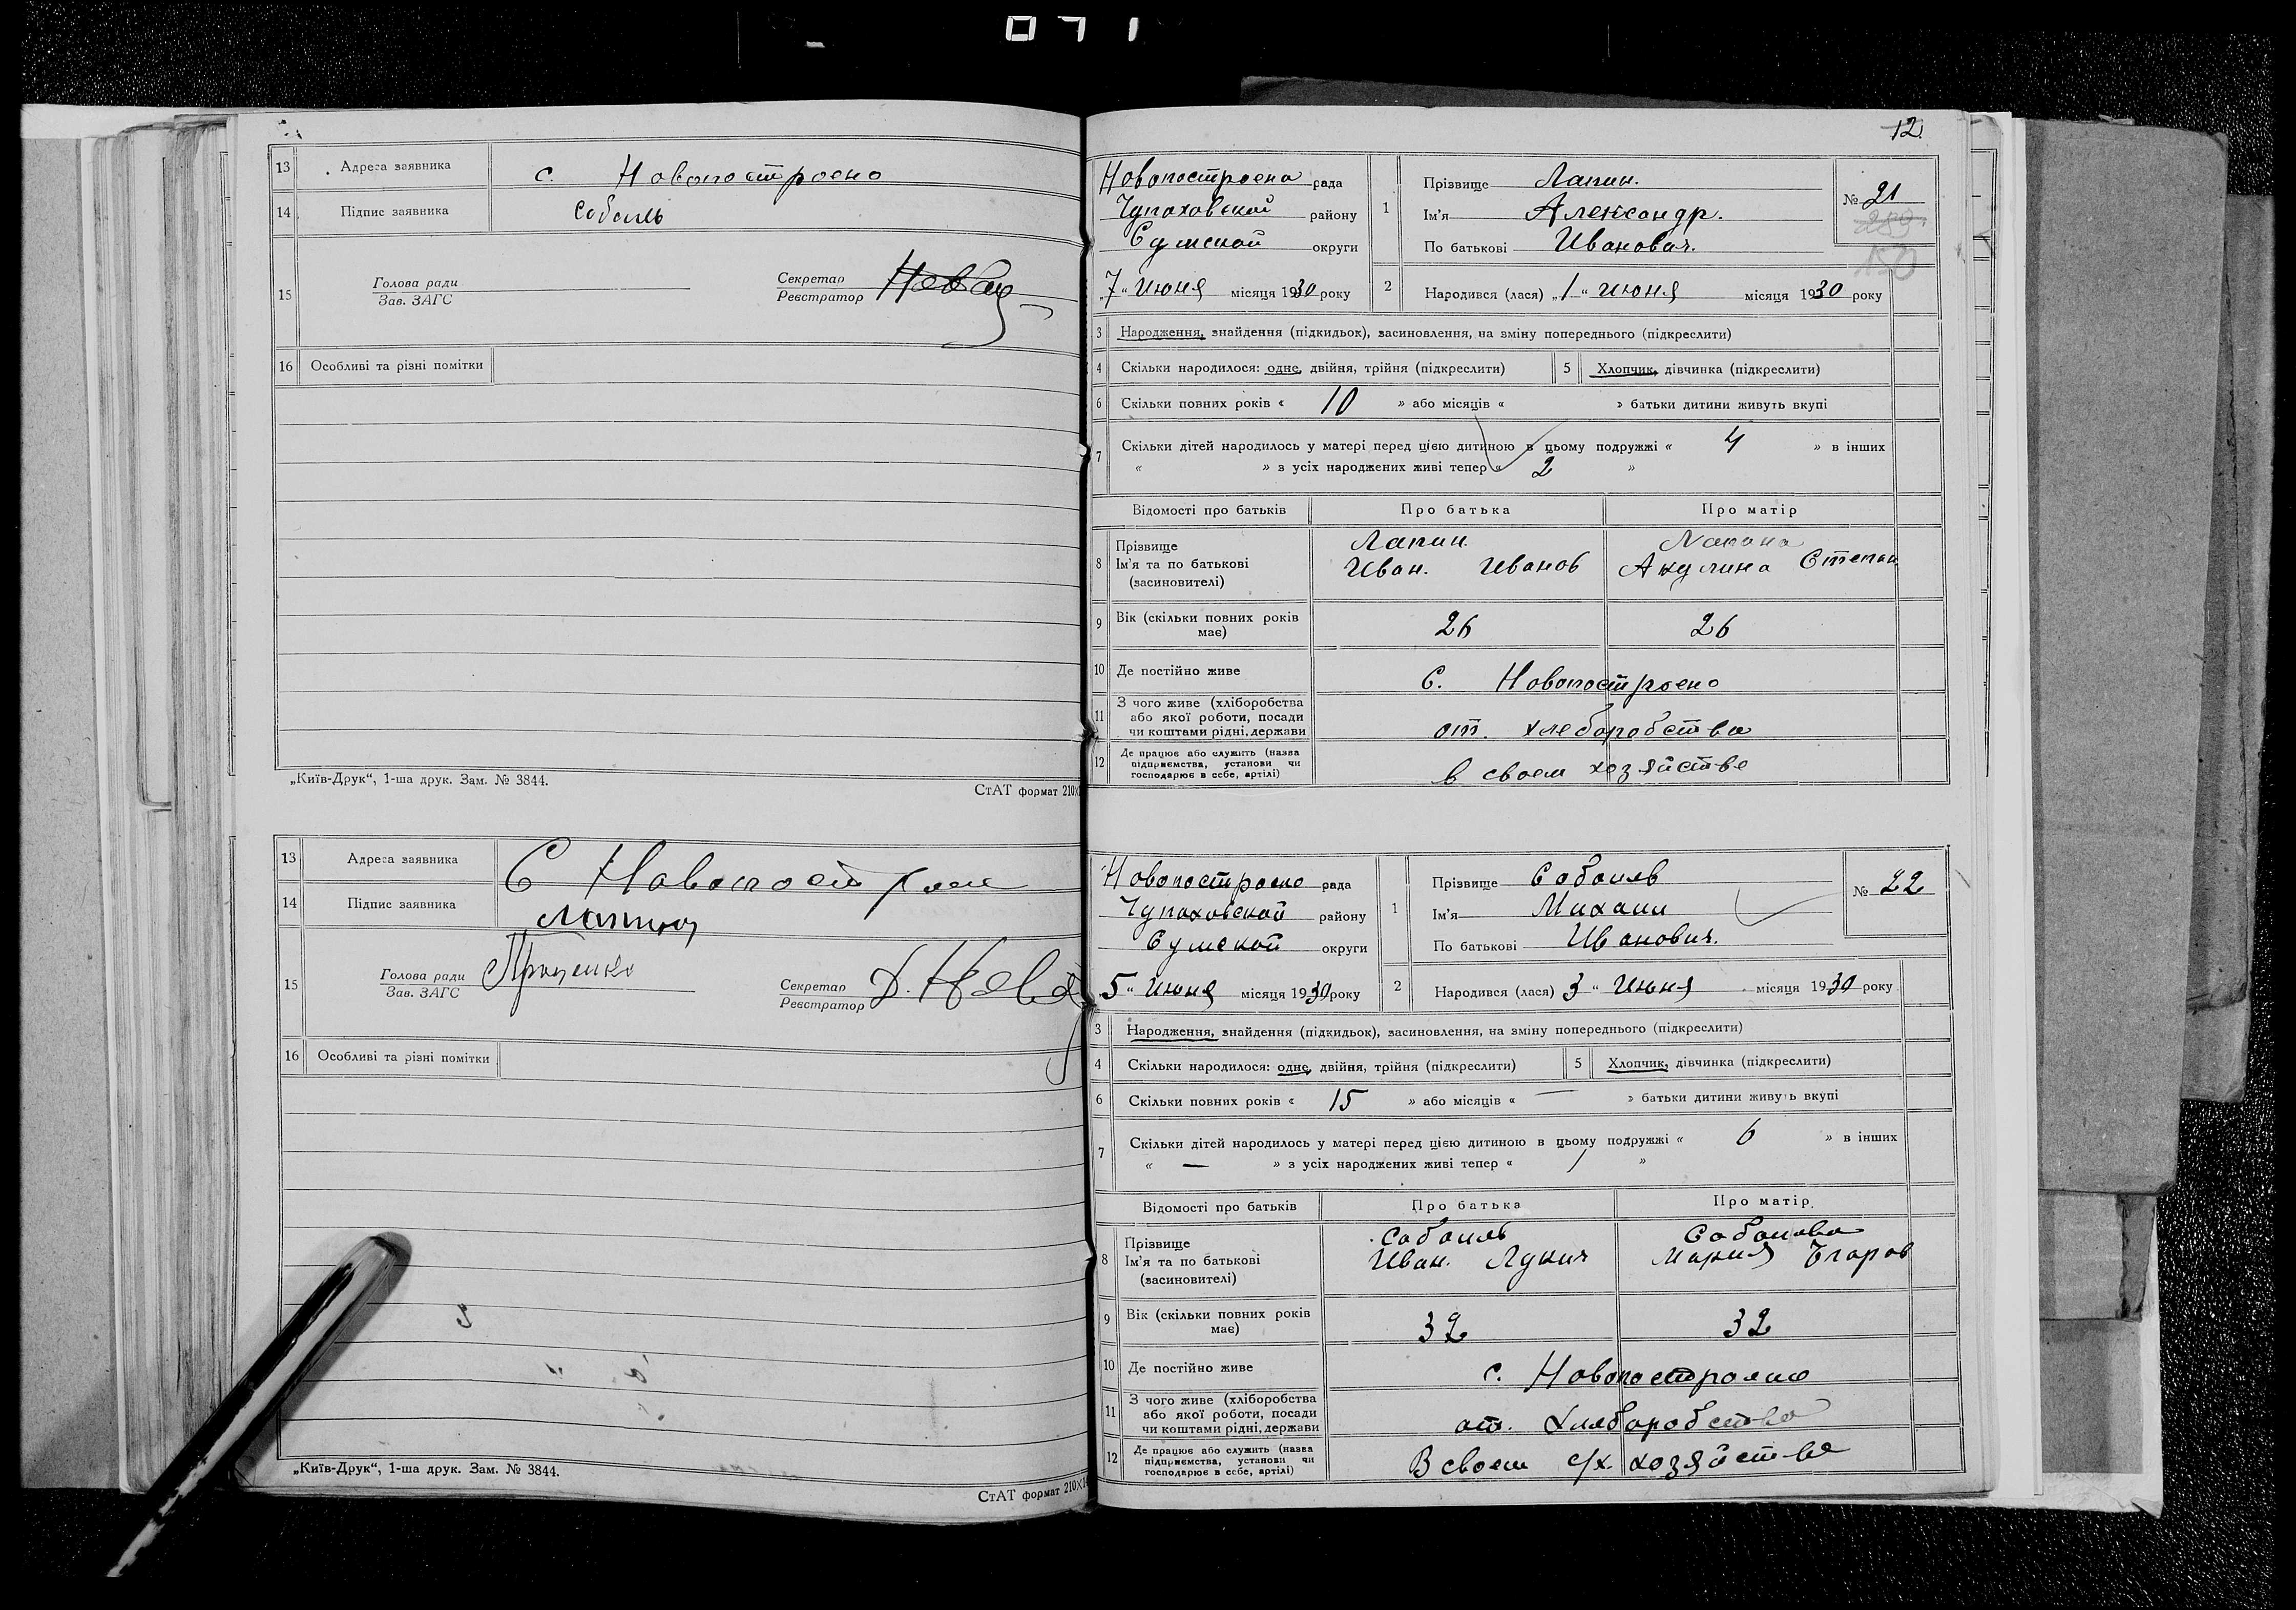 071
13 Адреса заявника с. Новопостроено
14 Підпис заявника Собаиль
15 Голова ради
Зав. ЗАГС
Секретар
Реєстратор
16 Особливі та різні помітки
„Київ-Друк“, 1-ша друк. Зам. № 3844.
СтАТ формат 210×
13 Адреса заявника С Новопострое
14 Підпис заявника Лапин
15 Голова ради
Зав. ЗАГС Проценко
Секретар
Реєстратор
16 Особливі та різні помітки
„Київ-Друк“, 1-ша друк. Зам. № 3844.
СтАТ формат 210×14
12.
Новопостроено рада
Чупаховской району
Сумской округи
„7“ Июня місяця 1930 року
1 Прізвище Лапин.
Ім'я Александр.
По батькові Иванович.
№ 21
289
150
2 Народився (лася) „1“ Июня місяця 1930 року
3 Народження, знайдення (підкидьок), засиновлення, на зміну попереднього (підкреслити)
4 Скільки народилося: одне, двійня, трійня (підкреслити) 5 Хлопчик, дівчинка (підкреслити)
6 Скільки повних років « 10 » або місяців « » батьки дитини живуть вкупі
7 Скільки дітей народилось у матері перед цією дитиною в цьому подружжі « 4 » в інших
« » з усіх народжених живі тепер « 2 »
Відомості про батьків Про батька Про матір
8 Прізвище Лапин. Лапина
Ім'я та по батькові Иван. Иванов Акулина Степан
(засиновителі)
9 Вік (скільки повних років 26 26
має)
10 Де постійно живе С. Новопостроено
11 З чого живе (хліборобства
або якої роботи, посади
чи коштами рідні, держави от. хлеборобства
12 Де працює або служить (назва
підприємства, установи чи
господарює в себе, артілі) в своем хозяйстве
Новопостроено рада
Чупаховской району
Сумской округи
5“ Июня місяця 1930 року
1 Прізвище Собаиль
Ім'я Михаил
По батькові Иванович.
№ 22
2 Народився (лася) 3“ Июня місяця 1930 року
3 Народження, знайдення (підкидьок), засиновлення, на зміну попереднього (підкреслити)
4 Скільки народилося: одне, двійня, трійня (підкреслити) 5 Хлопчик, дівчинка (підкреслити)
6 Скільки повних років « 15 » або місяців « — » батьки дитини живуть вкупі
7 Скільки дітей народилось у матері перед цією дитиною в цьому подружжі « 6 » в інших
« — » з усіх народжених живі тепер « 1 »
Відомості про батьків Про батька Про матір
8 Прізвище Собаиль
Ім'я та по батькові Иван. Лукич Мария Егоров
(засиновителі)
9 Вік (скільки повних років 32 32
має)
10 Де постійно живе с. Новопостроено
11 З чого живе (хліборобства
або якої роботи, посади
чи коштами рідні, держави от. Хлеборобства
12 Де працює або служить (назва
підприємства, установи чи
господарює в себе, артілі) В своем с/х. хозяйстве